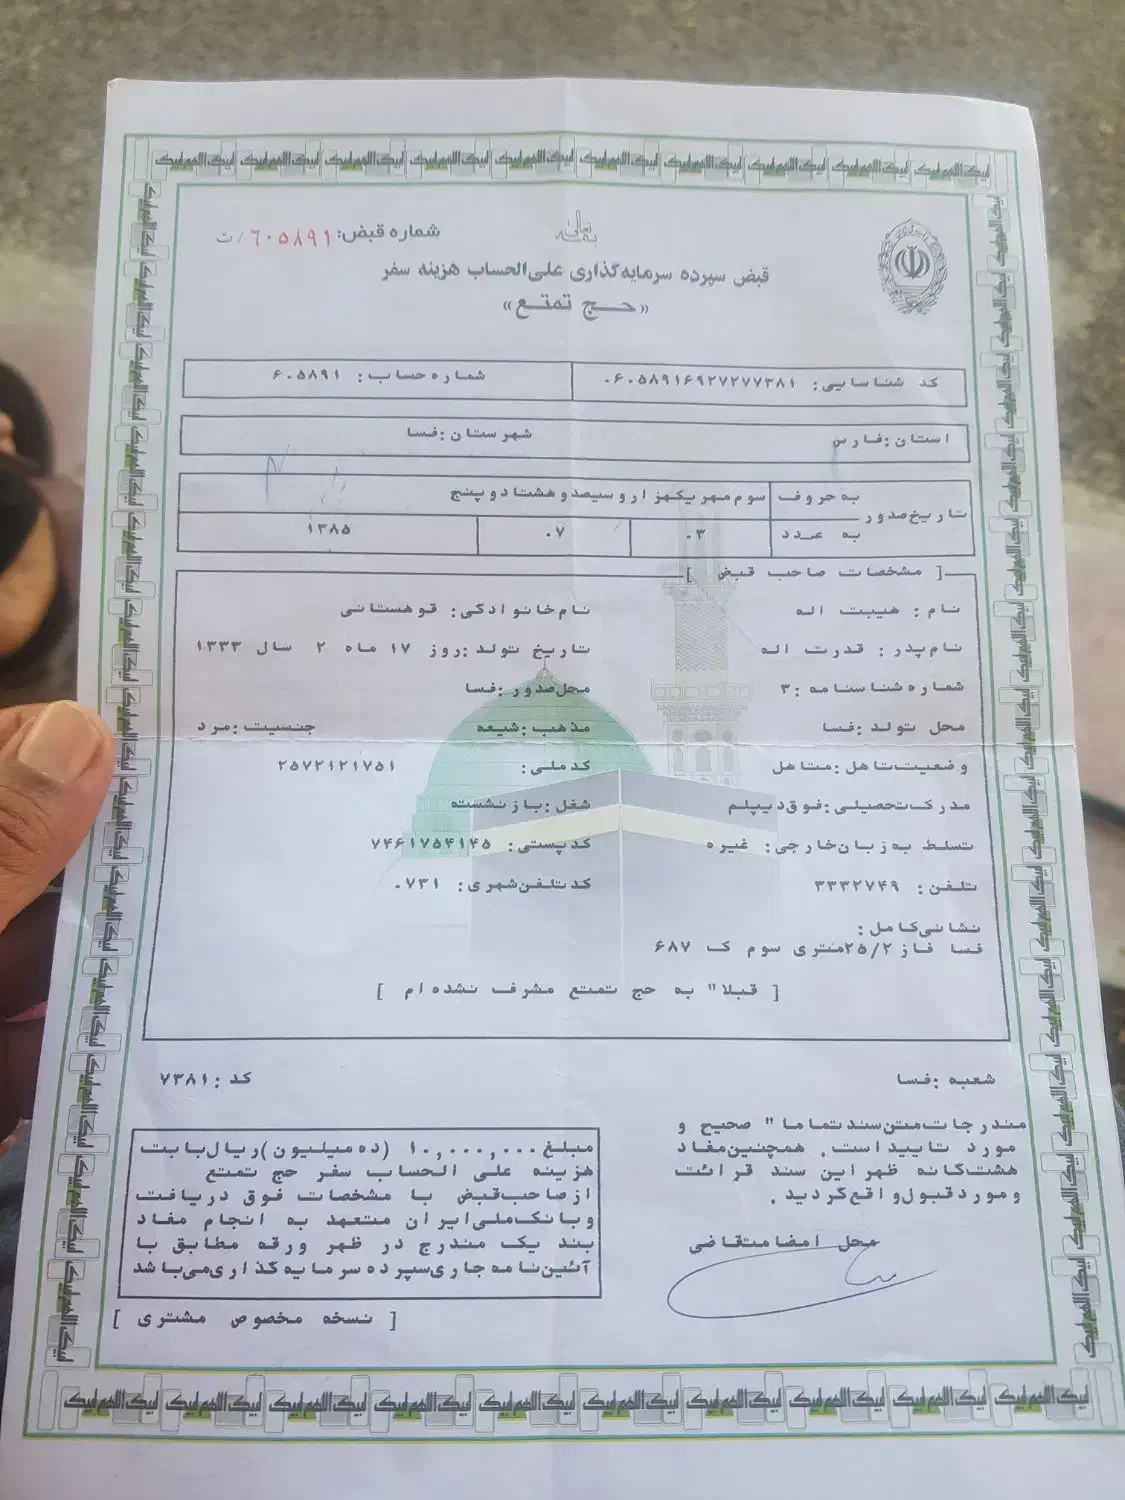 بسمه تعالی
شماره قبض: ۶۰۵۸۹۱/ت
قبض سپرده سرمایه‌گذاری علی‌الحساب هزینه سفر
«حج تمتع»
کد شناسایی: ۰۶۰۵۸۹۱۶۹۲۷۲۷۷۳۸۱ شماره حساب: ۶۰۵۸۹۱
استان: فارس شهرستان: فسا
تاریخ صدور به حروف سوم مهر یکهزار و سیصد و هشتاد و پنج
به عدد ۰۳ ۰۷ ۱۳۸۵
[ مشخصات صاحب قبض ]
نام: هیبت اله نام خانوادگی: قوهستانی
نام پدر: قدرت اله تاریخ تولد: روز ۱۷ ماه ۲ سال ۱۳۳۳
شماره شناسنامه: ۳ محل صدور: فسا
محل تولد: فسا مذهب: شیعه جنسیت: مرد
وضعیت تاهل: متاهل کد ملی: ۲۵۷۲۱۲۱۷۵۱
مدرک تحصیلی: فوق دیپلم شغل: بازنشسته
تسلط به زبان خارجی: غیره کد پستی: ۷۴۶۱۷۵۴۱۴۵
تلفن: ۳۳۳۲۷۴۹ کد تلفن شهری: ۰۷۳۱
نشانی کامل:
فسا فاز ۲۵/۲متری سوم ک ۶۸۷
[ قبلا" به حج تمتع مشرف نشده ام ]
شعبه: فسا کد: ۷۳۸۱
مندرجات متن سند تماما" صحیح و
مورد تایید است. همچنین مفاد
هشت گانه ظهر این سند قرائت
و مورد قبول واقع گردید.
محل امضا متقاضی
مبلغ ۱۰,۰۰۰,۰۰۰ (ده میلیون) ریال بابت
هزینه علی الحساب سفر حج تمتع
از صاحب قبض با مشخصات فوق دریافت
و بانک ملی ایران متعهد به انجام مفاد
بند یک مندرج در ظهر ورقه مطابق با
آئین نامه جاری سپرده سرمایه گذاری می باشد
[ نسخه مخصوص مشتری ]